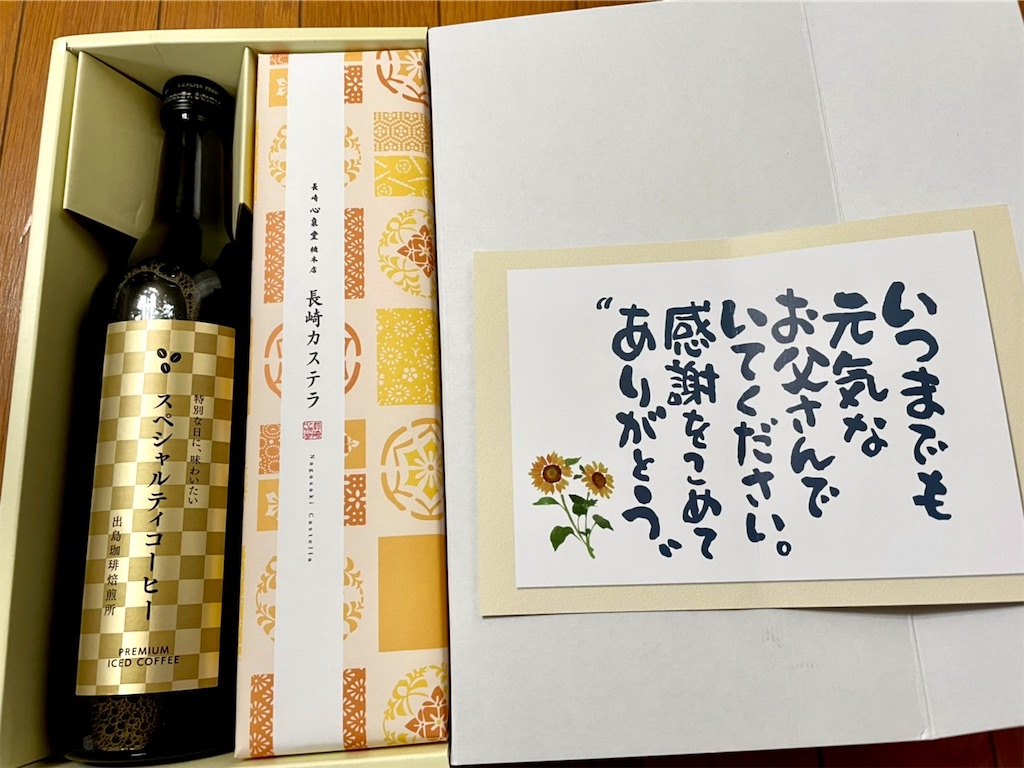 特別な日に、味わいたい
スペシャルティコーヒー
出島珈琲焙煎所
PREMIUM
ICED COFFEE
長崎心泉堂 總本店
長崎カステラ
Nagasaki Castella
いつまでも
元気な
お父さんで
いてください。
感謝をこめて
“ありがとう”